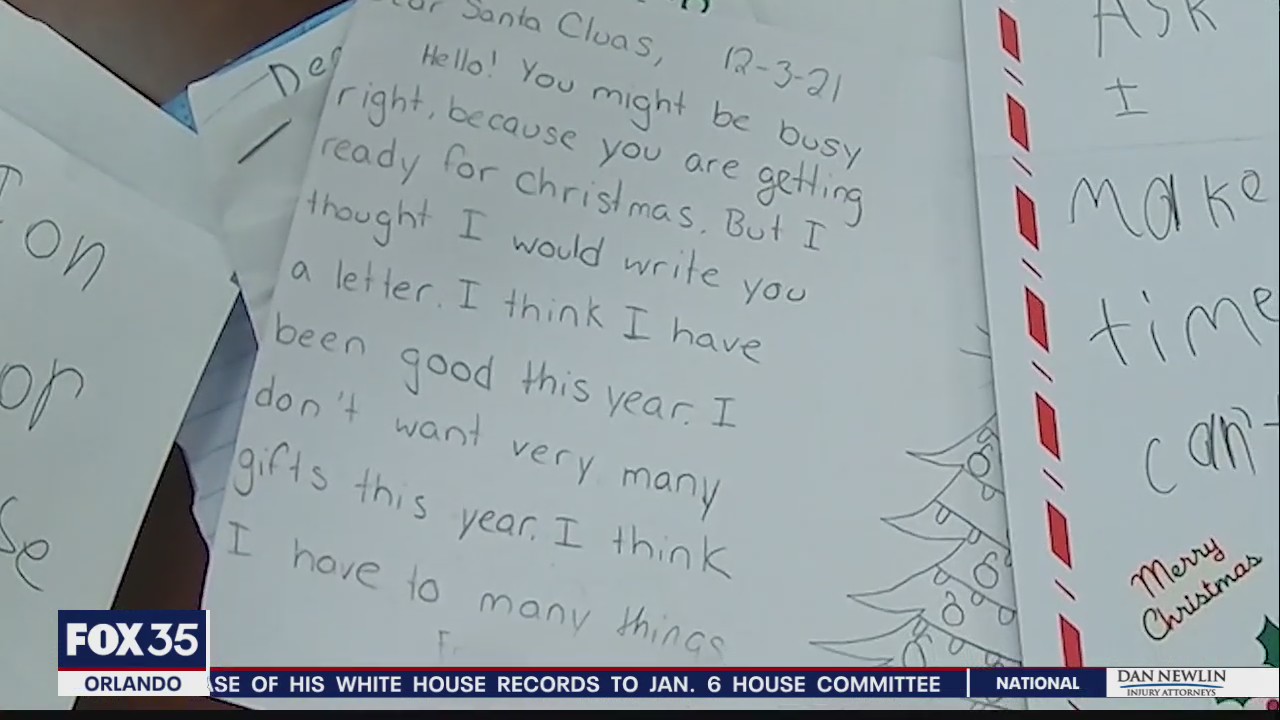 Santa Cluas, 12-3-21
Hello! You might be busy
right, because you are getting
ready for Christmas. But I
thought I would write you
a letter. I think I have
been good this year. I
don't want very many
gifts this year. I think
I have to many things
on
or
se
ASK
I
make
time
can't
Merry
Christmas
FOX 35
ORLANDO
OF HIS WHITE HOUSE RECORDS TO JAN. 6 HOUSE COMMITTEE
NATIONAL
DAN NEWLIN
INJURY ATTORNEYS